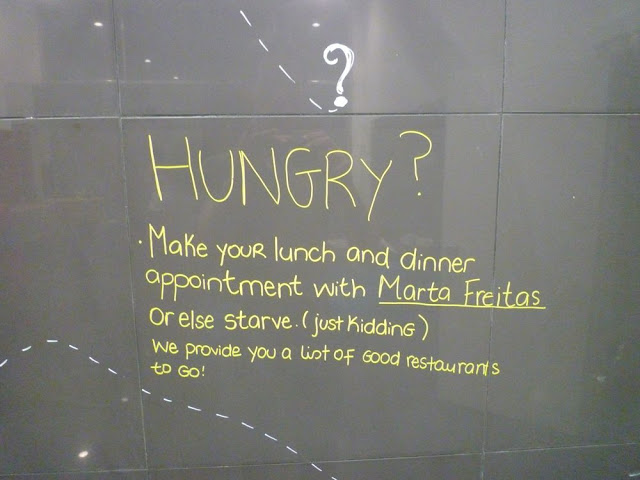 ?
HUNGRY?
· Make your lunch and dinner
appointment with Marta Freitas
Or else starve. (just kidding)
We provide you a list of good restaurants
to Go!